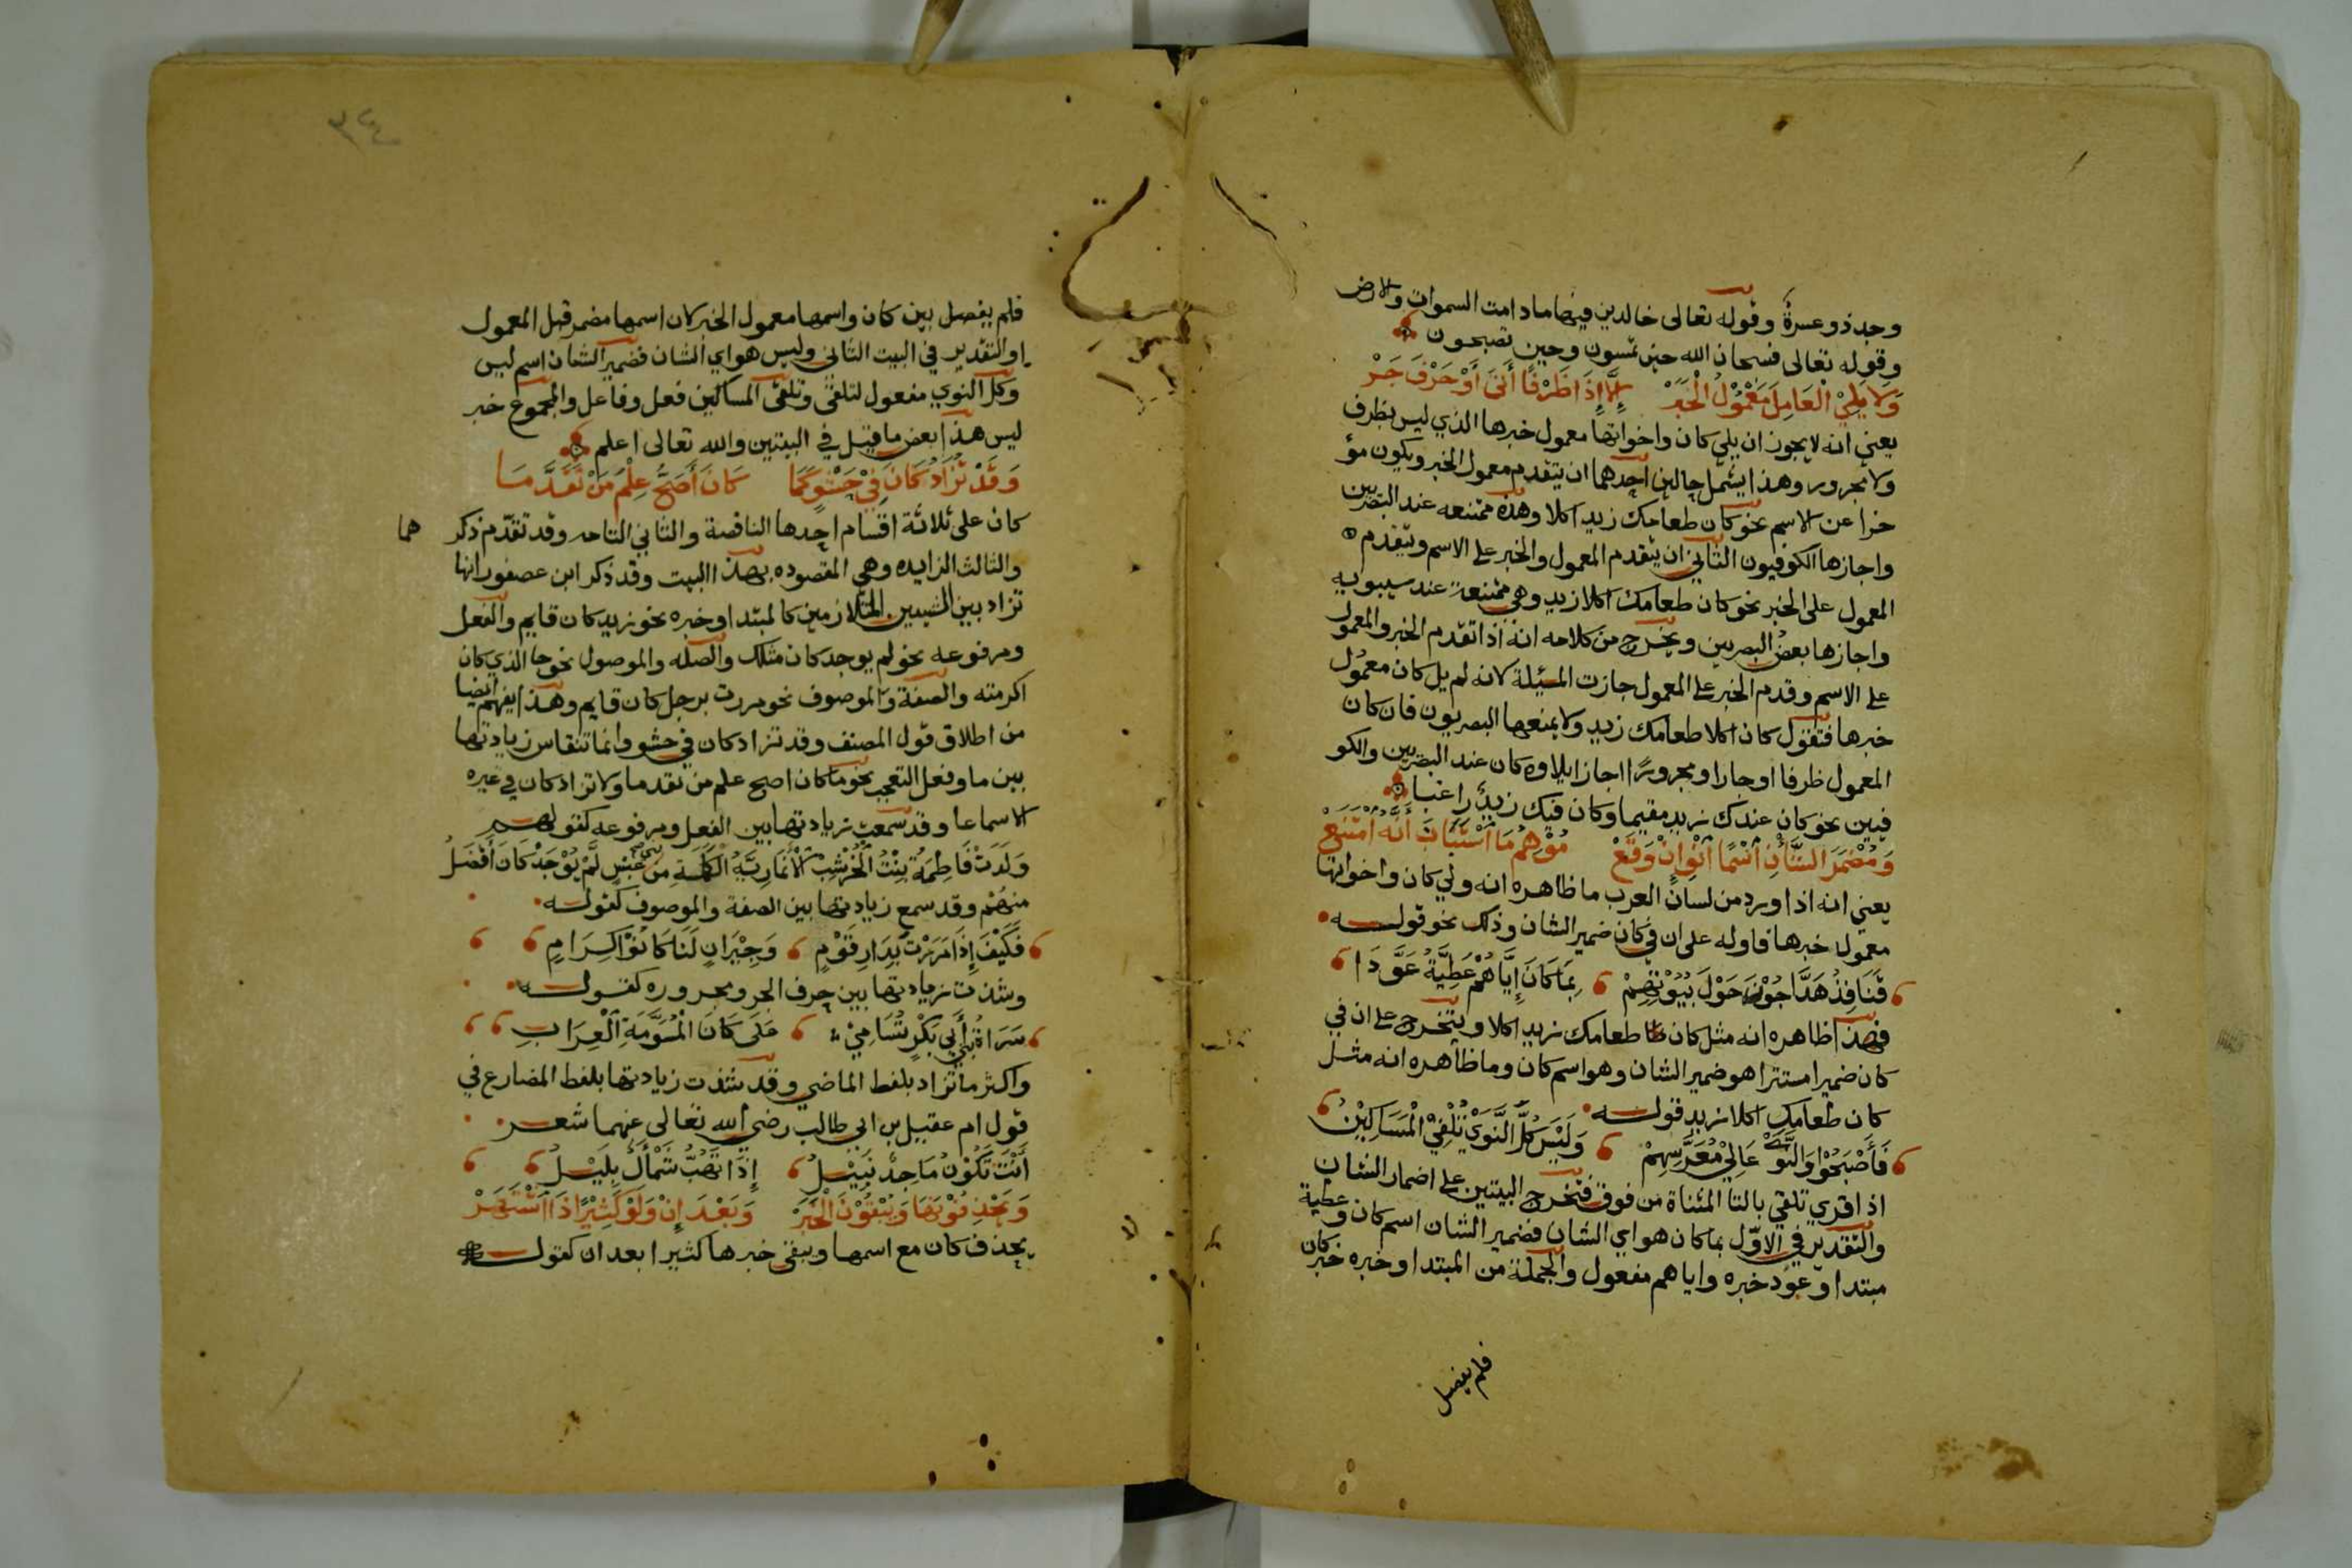 وجد ذو عسرة وقوله تعالى خالدين فيها ما دامت السموات والارض
وقوله تعالى فسبحان الله حين تمسون وحين تصبحون
وَلَا يَلِيْ الْعَامِلَ مَعْمُوْلُ الْخَبَرْ إِلَّا إِذَا ظَرْفًا أَتَى أَوْ حَرْفَ جَرْ
يعني انه لا يجوز ان يلي كان واخواتها معمول خبرها الذي ليس بظرف
ولا مجرور وهذا يشمل حالين احدهما ان يتقدم معمول الخبر ويكون مؤ
خرا عن الاسم نحو كان طعامك زيد اكلا وهذه ممتنعه عند البصريين
واجازها الكوفيون الثاني ان يتقدم المعمول والخبر على الاسم ويتقدم
المعمول على الخبر نحو كان طعامك اكلا زيد وهي ممتنعة عند سيبويه
واجازها بعض البصريين ويخرج من كلامه انه اذا تقدم الخبر والمعمول
على الاسم وقدم الخبر على المعمول جازت المسئلة لانه لم يل كان معمول
خبرها فتقول كان اكلا طعامك زيد ولا يمنعها البصريون فان كان
المعمول ظرفا او جارا ومجرورًا اجاز ايلاوه كان عند البصريين والكو
فيين نحو كان عندك زيد مقيما وكان فيك زيد راغبا
وَمُضْمَرَ الشَّأْنِ اسْمًا انْوِ إِنْ وَقَعْ مُوْهِمُ مَا اسْتَبَانَ أَنَّهُ امْتَنَعْ
يعني انه اذا ورد من لسان العرب ما ظاهره انه ولي كان واخواتها
معمول خبرها فاوله على ان في كان ضمير الشان وذلك نحو قوله
قَنَافِذُ هَدَّاجُوْنَ حَوْلَ بُيُوْتِهِمْ بِمَا كَانَ إِيَّاهُمْ عَطِيَّةُ عَوَّدَا
فهذا ظاهره انه مثل كان طعامك زيد اكلا ويتخرج على ان في
كان ضميرا مستترا هو ضمير الشان وهو اسم كان وما ظاهره انه مثل
كان طعامك اكلا زيد قوله
فَأَصْبَحُوْا وَالنَّوَى عَالِيْ مُعَرَّسِهِمْ وَلَيْسَ كُلَّ النَّوَىْ تُلْقِيْ الْمَسَاكِيْنُ
اذا قري تلقي بالتا المثناة من فوق فتخرج البيتين على اضمار الشان
والتقدير في الاوّل بما كان هو اي الشان فضمير الشان اسم كان وعطية
مبتدا وعوّد خبره واياهم مفعول والجملة من المبتدا وخبره خبر كان
فلم يفصل
٣٤
فلم يفصل بين كان واسمها معمول الخبر لان اسمها مضمر قبل المعمول
او التقدير في البيت الثاني وليس هو اي الشان فضمير الشان اسم ليس
وكل النوى مفعول لتلقى وتلقى المساكين فعل وفاعل والمجموع خبر
ليس هذا بعض ما قيل في البيتين والله تعالى اعلم
وَقَدْ تُزَادُ كَانَ فِيْ حَشْوٍ كَمَا كَانَ أَصَحَّ عِلْمَ مَنْ تَقَدَّمَا
كان على ثلاثة اقسام احدها الناقصة والثاني التامه وقد تقدّم ذكر هما
والثالث الزايده وهي المقصوده بهذا البيت وقد ذكر ابن عصفور انها
تزاد بين الشيين المتلازمين كالمبتدا وخبره نحو زيد كان قايم والفعل
ومرفوعه نحو لم يوجد كان مثلك والصله والموصول نحو جا الذي كان
اكرمته والصفة والموصوف نحو مررت برجل كان قايم وهذا يفهم ايضا
من اطلاق قول المصنف وقد تزاد كان في حشو وانما تنقاس زيادتها
بين ما وفعل التعجب نحو ما كان اصح علم من تقدما ولا تزاد كان في غيره
الا سماعا وقد سمعت زيادتها بين الفعل ومرفوعه كقولهم
وَلَدَتْ فَاطِمَةُ بِنْتُ الْخُرْشُبِ الْأَنْمَارِيَّةُ الْكَمَلَةَ مِنْ بني عَبْسٍ لَمْ يُوْجَدْ كَانَ أَفْضَلُ
منهُم وقد سمع زيادتها بين الصفة والموصوف كقوله
فَكَيْفَ إِذَا مَرَرْتَ بِدَارِ قَوْمٍ وَجِيْرَانٍ لَنَا كَانُوْا كِرَامِ
وشذت زيادتها بين حرف الجر ومجروره كقوله
سَرَاةُ بَنِي أَبِي بَكْرٍ تَسَامَىْ عَلَى كَانَ الْمُسَوَّمَةِ الْعِرَابِ
واكثر ما تزاد بلفظ الماضي وقد شذت زيادتها بلفظ المضارع في
قول ام عقيل بن ابي طالب رضي الله تعالى عنهما شعر
أَنْتَ تَكُوْنُ مَاجِدٌ نَبِيْلُ إِذَا تَهُبُّ شَمْأَلٌ بَلِيْلُ
وَيَحْذِفُوْنَهَا وَيُبْقُوْنَ الْخَبَرْ وَبَعْدَ إِنْ وَلَوْ كَثِيْرًا ذَا اشْتَهَرْ
يحذف كان مع اسمها ويبقى خبرها كثيرا بعد ان كقوله